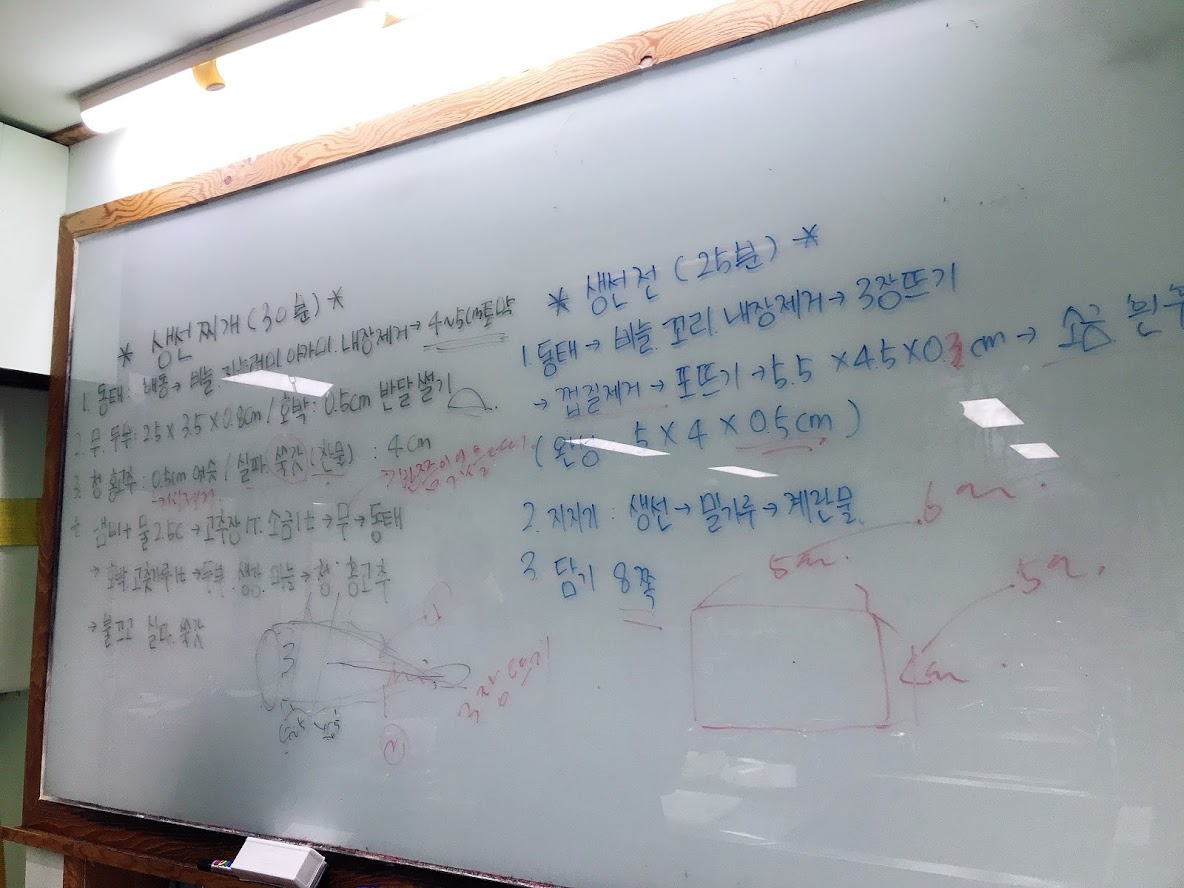 * 생선찌개 (30분) *
1. 동태: 해동 → 비늘. 지느러미. 아가미. 내장제거 → 4~5cm토막
2. 무. 두부: 2.5 × 3.5 × 0.8cm / 호박: 0.5cm 반달썰기
3. 청홍고추: 0.5cm 어슷 / 실파. 쑥갓(찬물) : 4cm
→씨제거
냄비+물 2.5C → 고추장 1T. 소금 1t → 무 → 동태
→ 호박 고춧가루1t → 두부. 생강. 마늘 → 청. 홍고추
→ 불끄고 실파. 쑥갓
3
3장뜨기
②
* 생선전 (25분) *
1. 동태 → 비늘. 꼬리. 내장제거 → 3장뜨기
→ 껍질제거 → 포뜨기 → 5.5 × 4.5 × 0.3cm → 소금. 흰
(완성 5 × 4 × 0.5cm)
2. 지지기 : 생선 → 밀가루 → 계란물
3. 담기 8쪽
6cm.
5cm.
5cm.
4cm